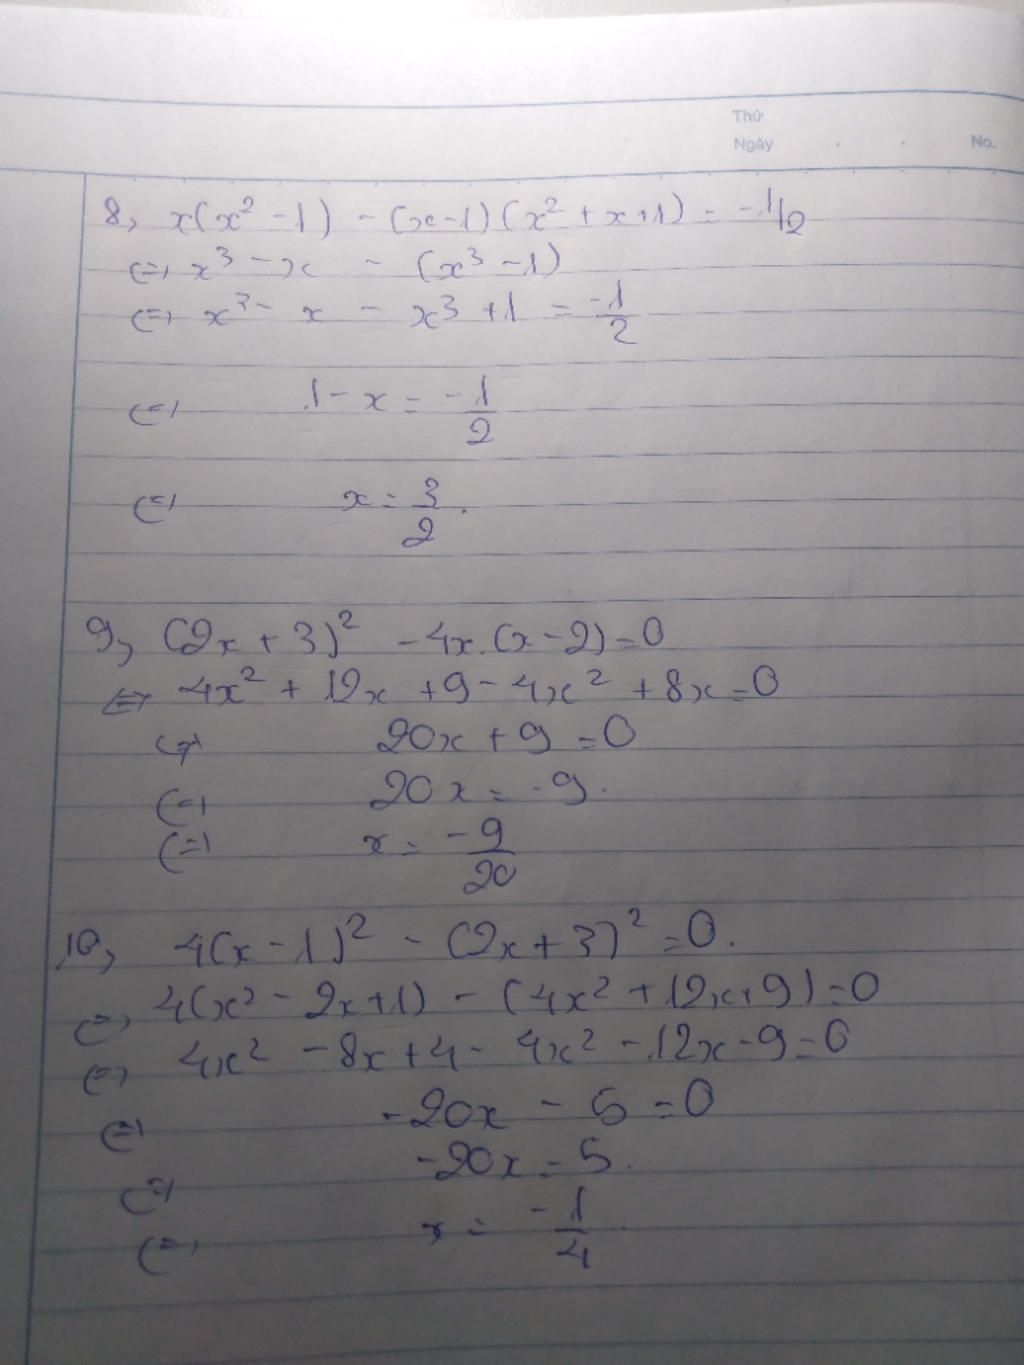 Thứ
Ngày
No.
8, x(x² - 1) - (x-1)(x² + x+1) = -1/2
(=) x³ - x - (x³ - 1)
(=) x³ - x - x³ + 1 = -1/2
(=) 1 - x = -1/2
(=) x = 3/2.
9, (2x + 3)² - 4x.(x-2) = 0
<=> 4x² + 12x + 9 - 4x² + 8x = 0
(=) 20x + 9 = 0
(=) 20x = -9.
(=) x = -9/20
10, 4(x - 1)² - (2x + 3)² = 0.
(=) 4(x² - 2x+1) - (4x² + 12x+9) = 0
(=) 4x² - 8x + 4 - 4x² - 12x - 9 = 0
(=) -20x - 5 = 0
(=) -20x = 5.
(=) x = -1/4